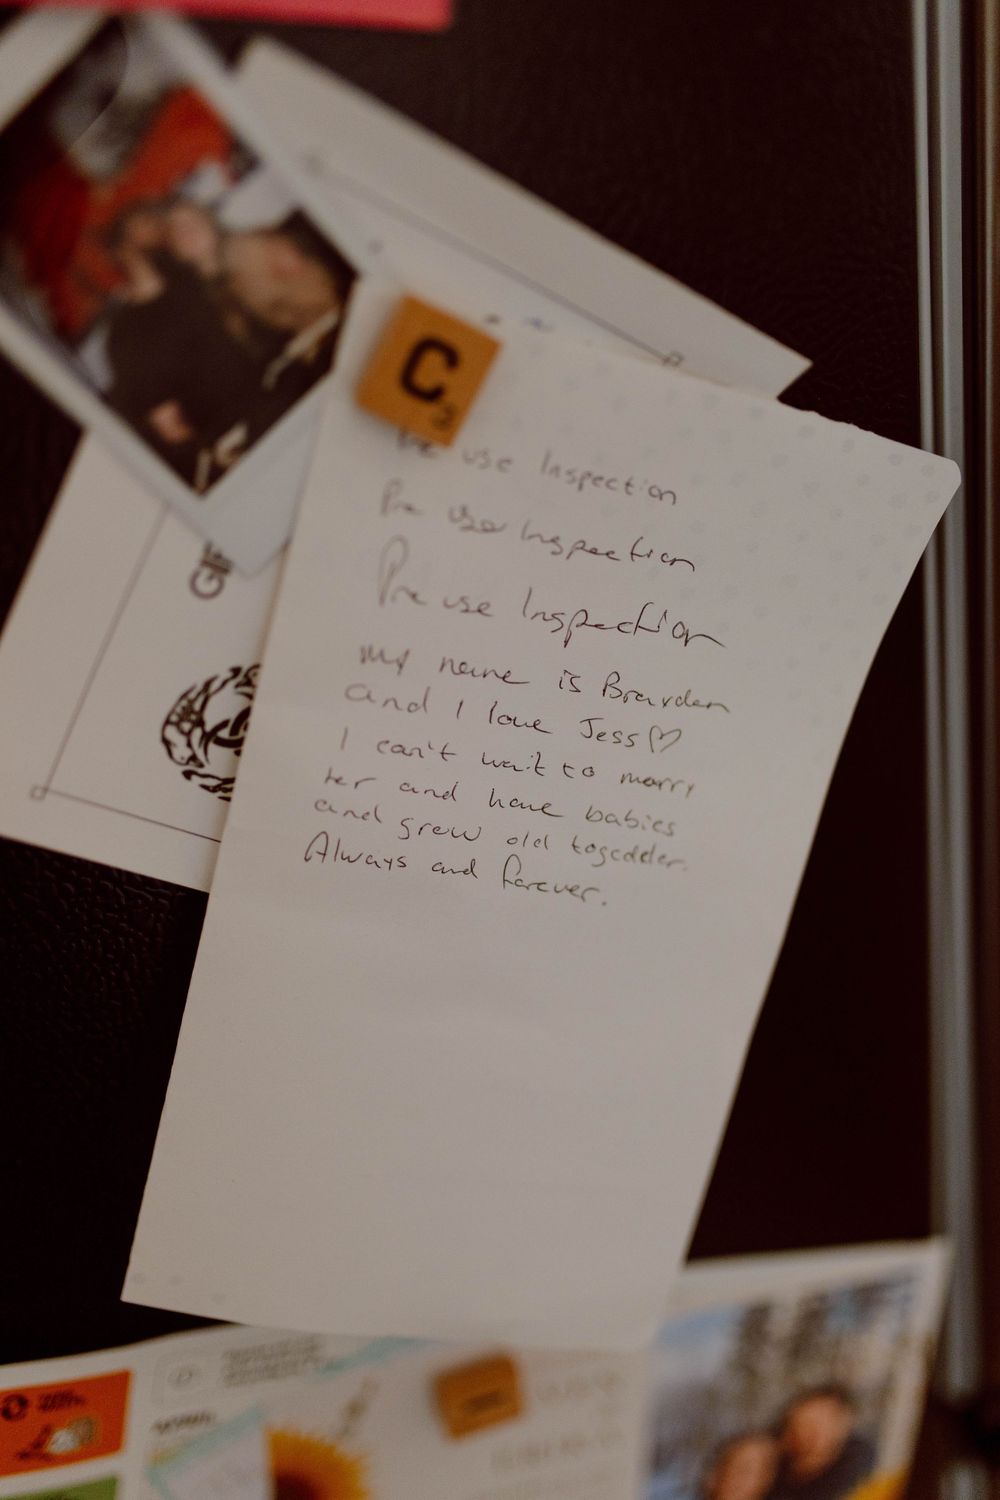 C
use Inspection
Pre use Inspection
Pre use Inspection
My name is Brayden
and I love Jess♡
I can't wait to marry
her and have babies
and grow old togedder.
Always and forever.
GIF